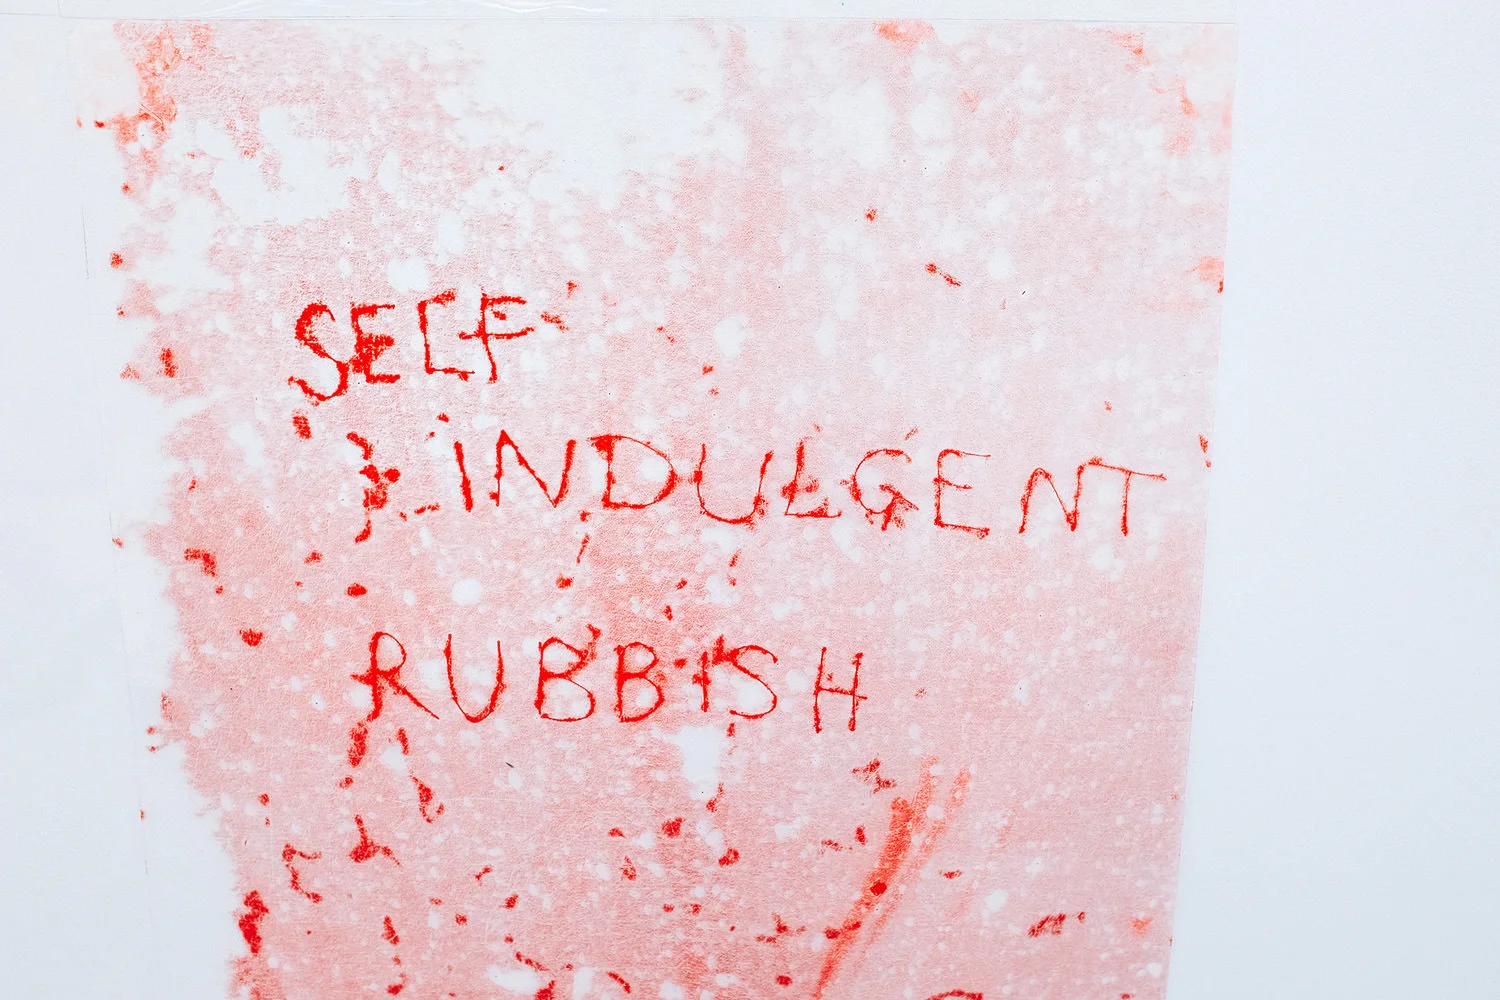 SELF
INDULGENT
RUBBISH